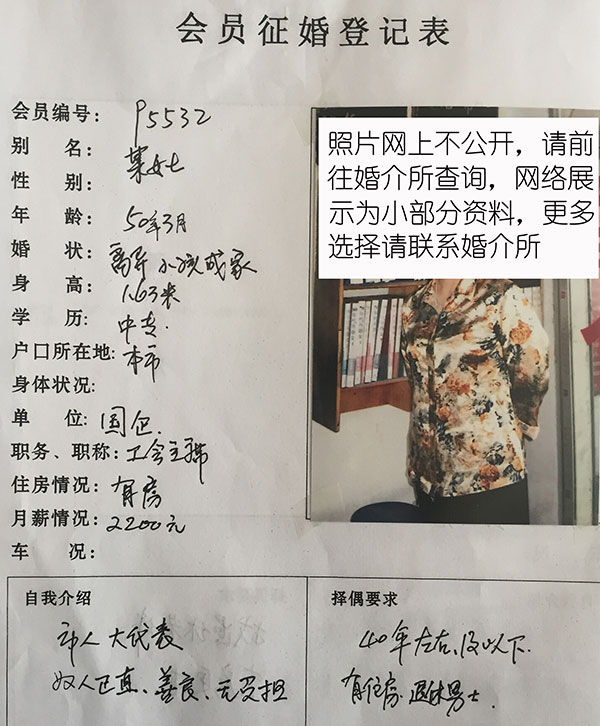 会员征婚登记表
会员编号：P5532
别 名：某女士
性 别：
年 龄：50年3月
婚 状：离异 小孩成家
身 高：1.63米
学 历：中专.
户口所在地：本市
身体状况：
单 位：国企.
职务、职称：工会主席
住房情况：有房
月薪情况：2200元
车 况：
照片网上不公开，请前
往婚介所查询，网络展
示为小部分资料，更多
选择请联系婚介所
自我介绍
市人大代表
正直、善良、无负担
择偶要求
40年左右、及以下.
有住房.退休男士.